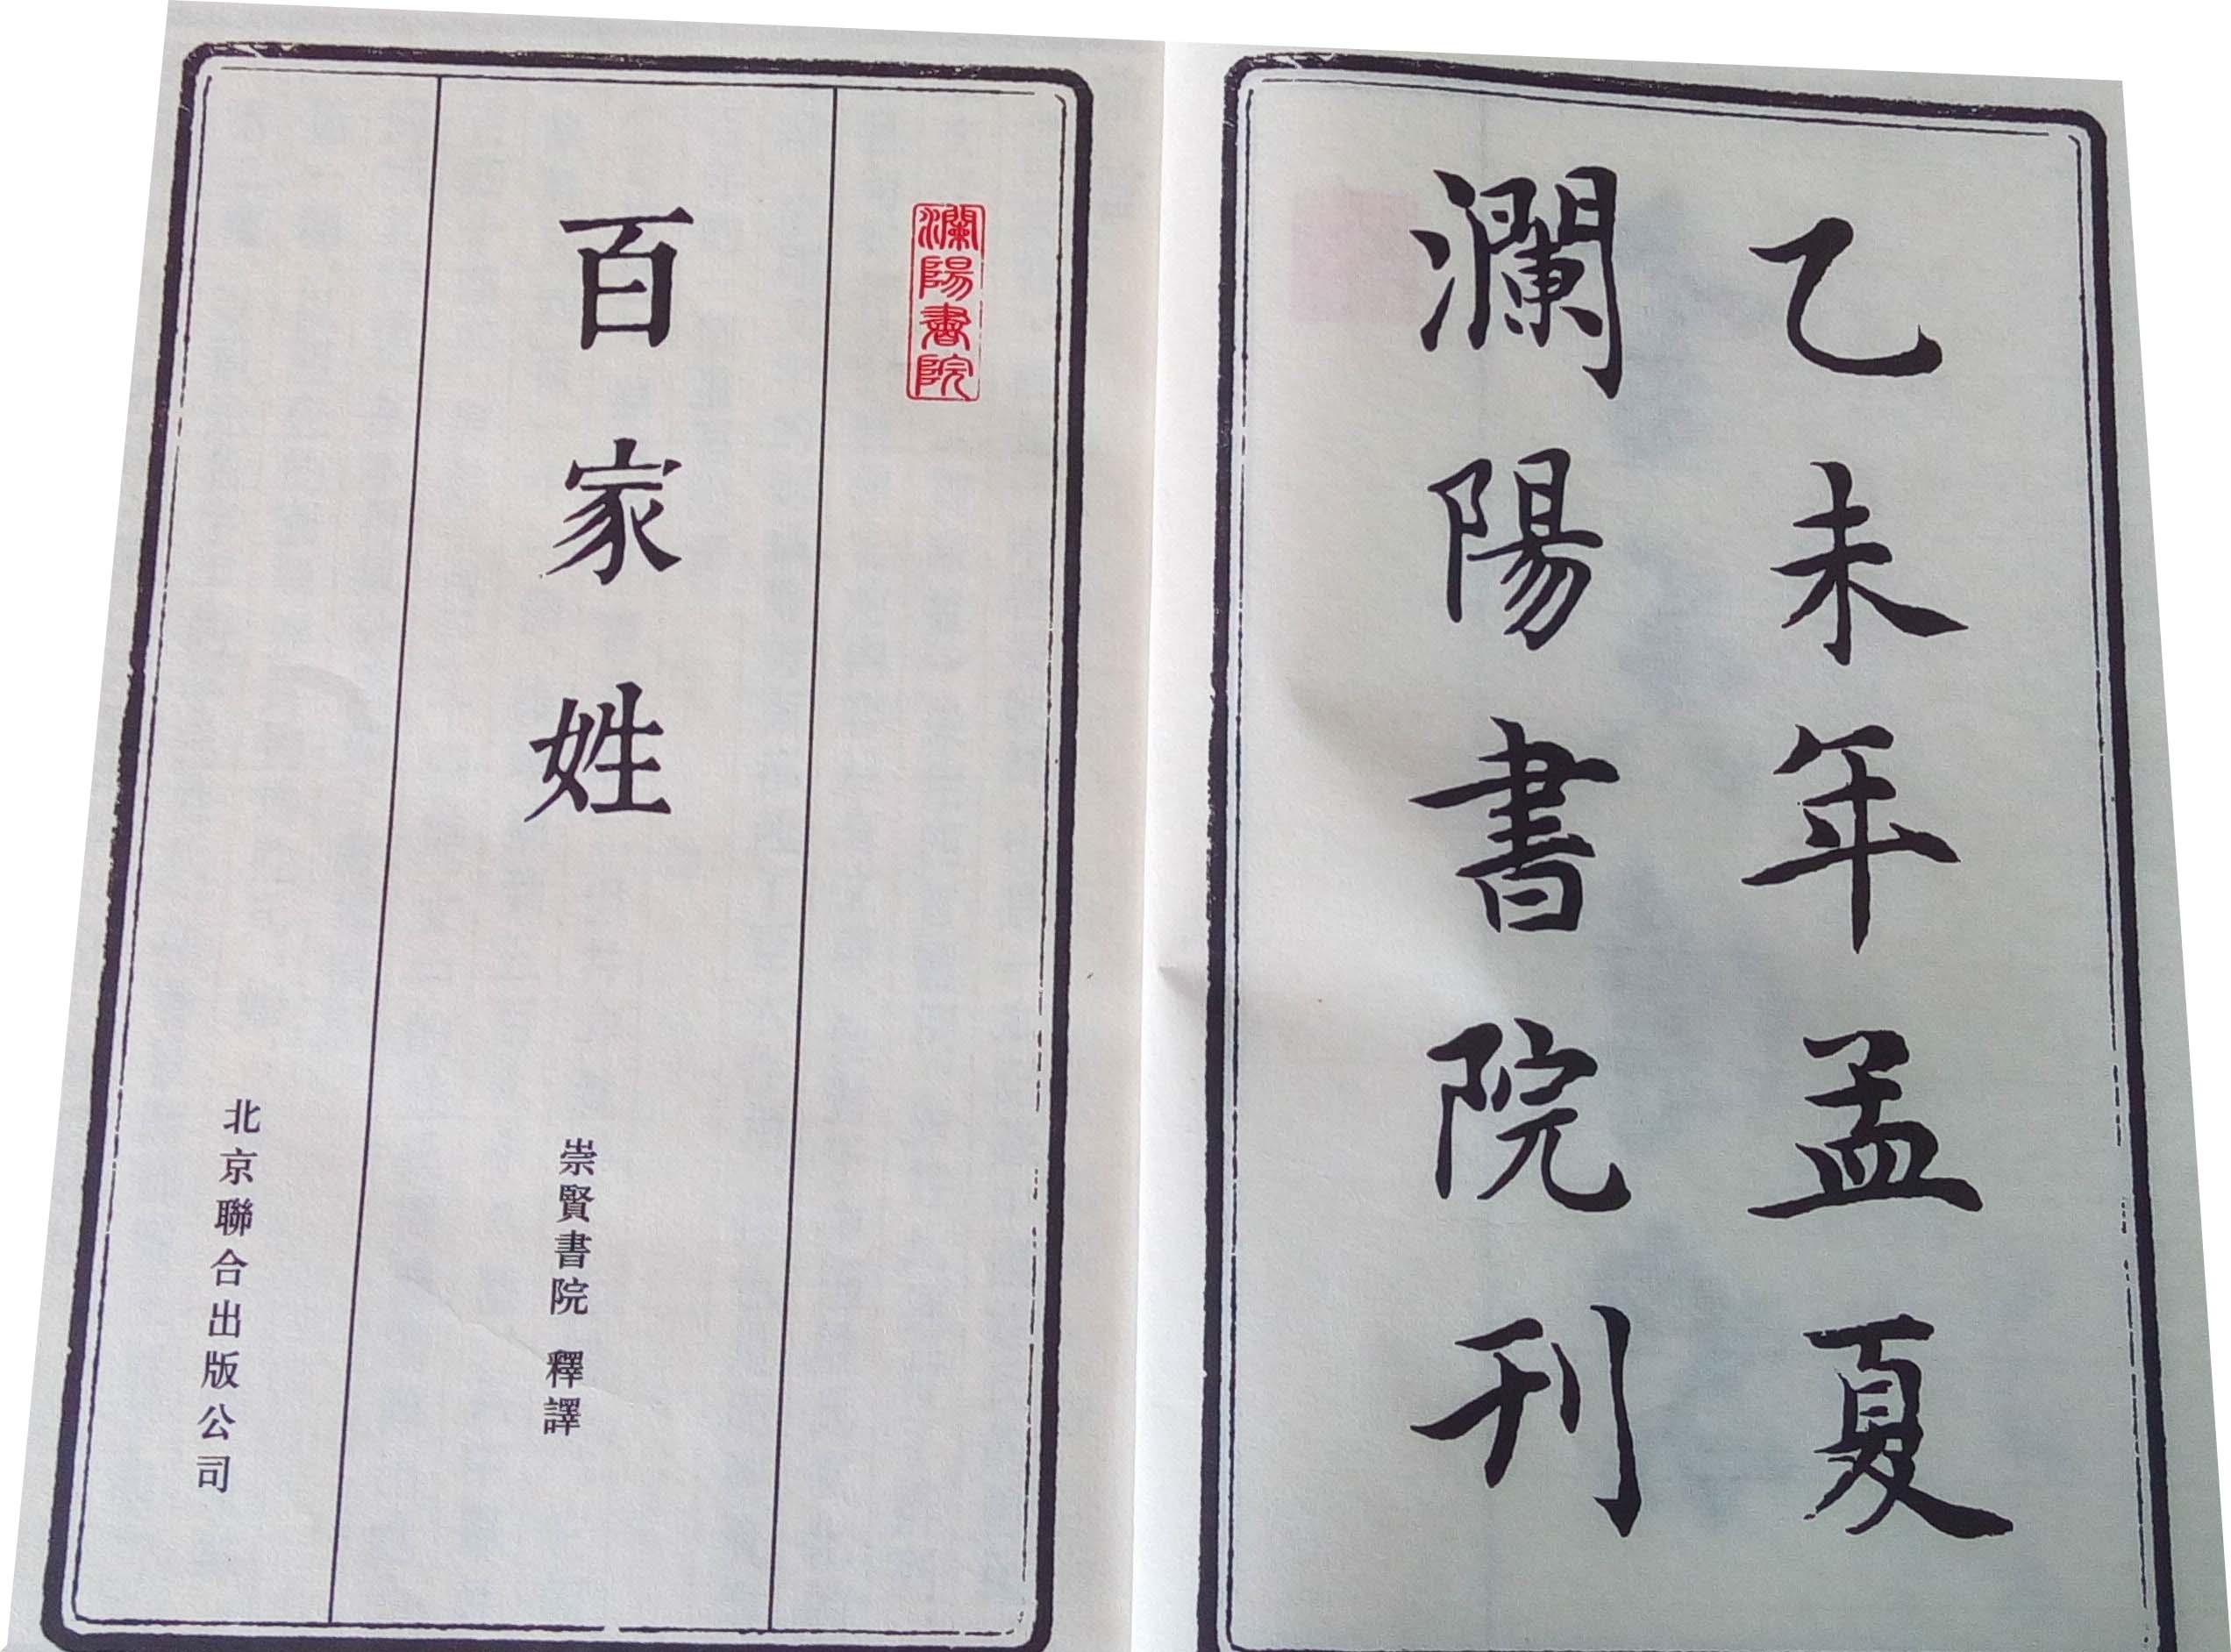 乙未年孟夏
瀾陽書院刊
瀾陽書院
百家姓
崇賢書院 釋譯
北京聯合出版公司